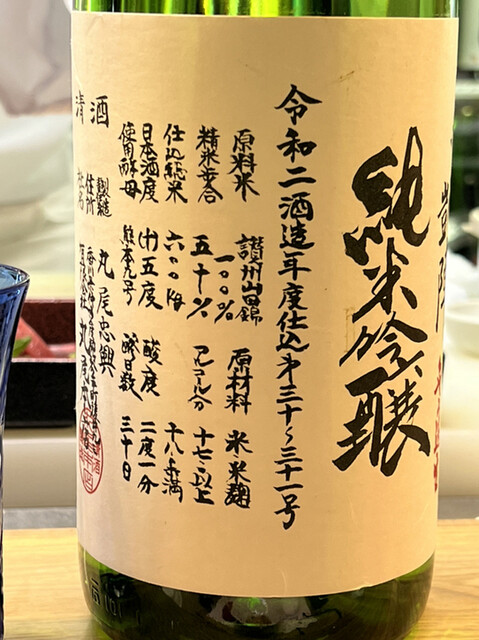 純米吟醸
令和二酒造年度仕込第三十〜三十一号
原料米 讃州山田錦一〇〇% 原材料 米 米麹
精米歩合 五十% アルコール分 十七・以上十八・未満
仕込総米 六〇〇kg 酸度 二度一分
日本酒度 (+)五度 醪日数 三十日
使用酵母 熊本九号
製造 丸尾忠興
住所
清酒